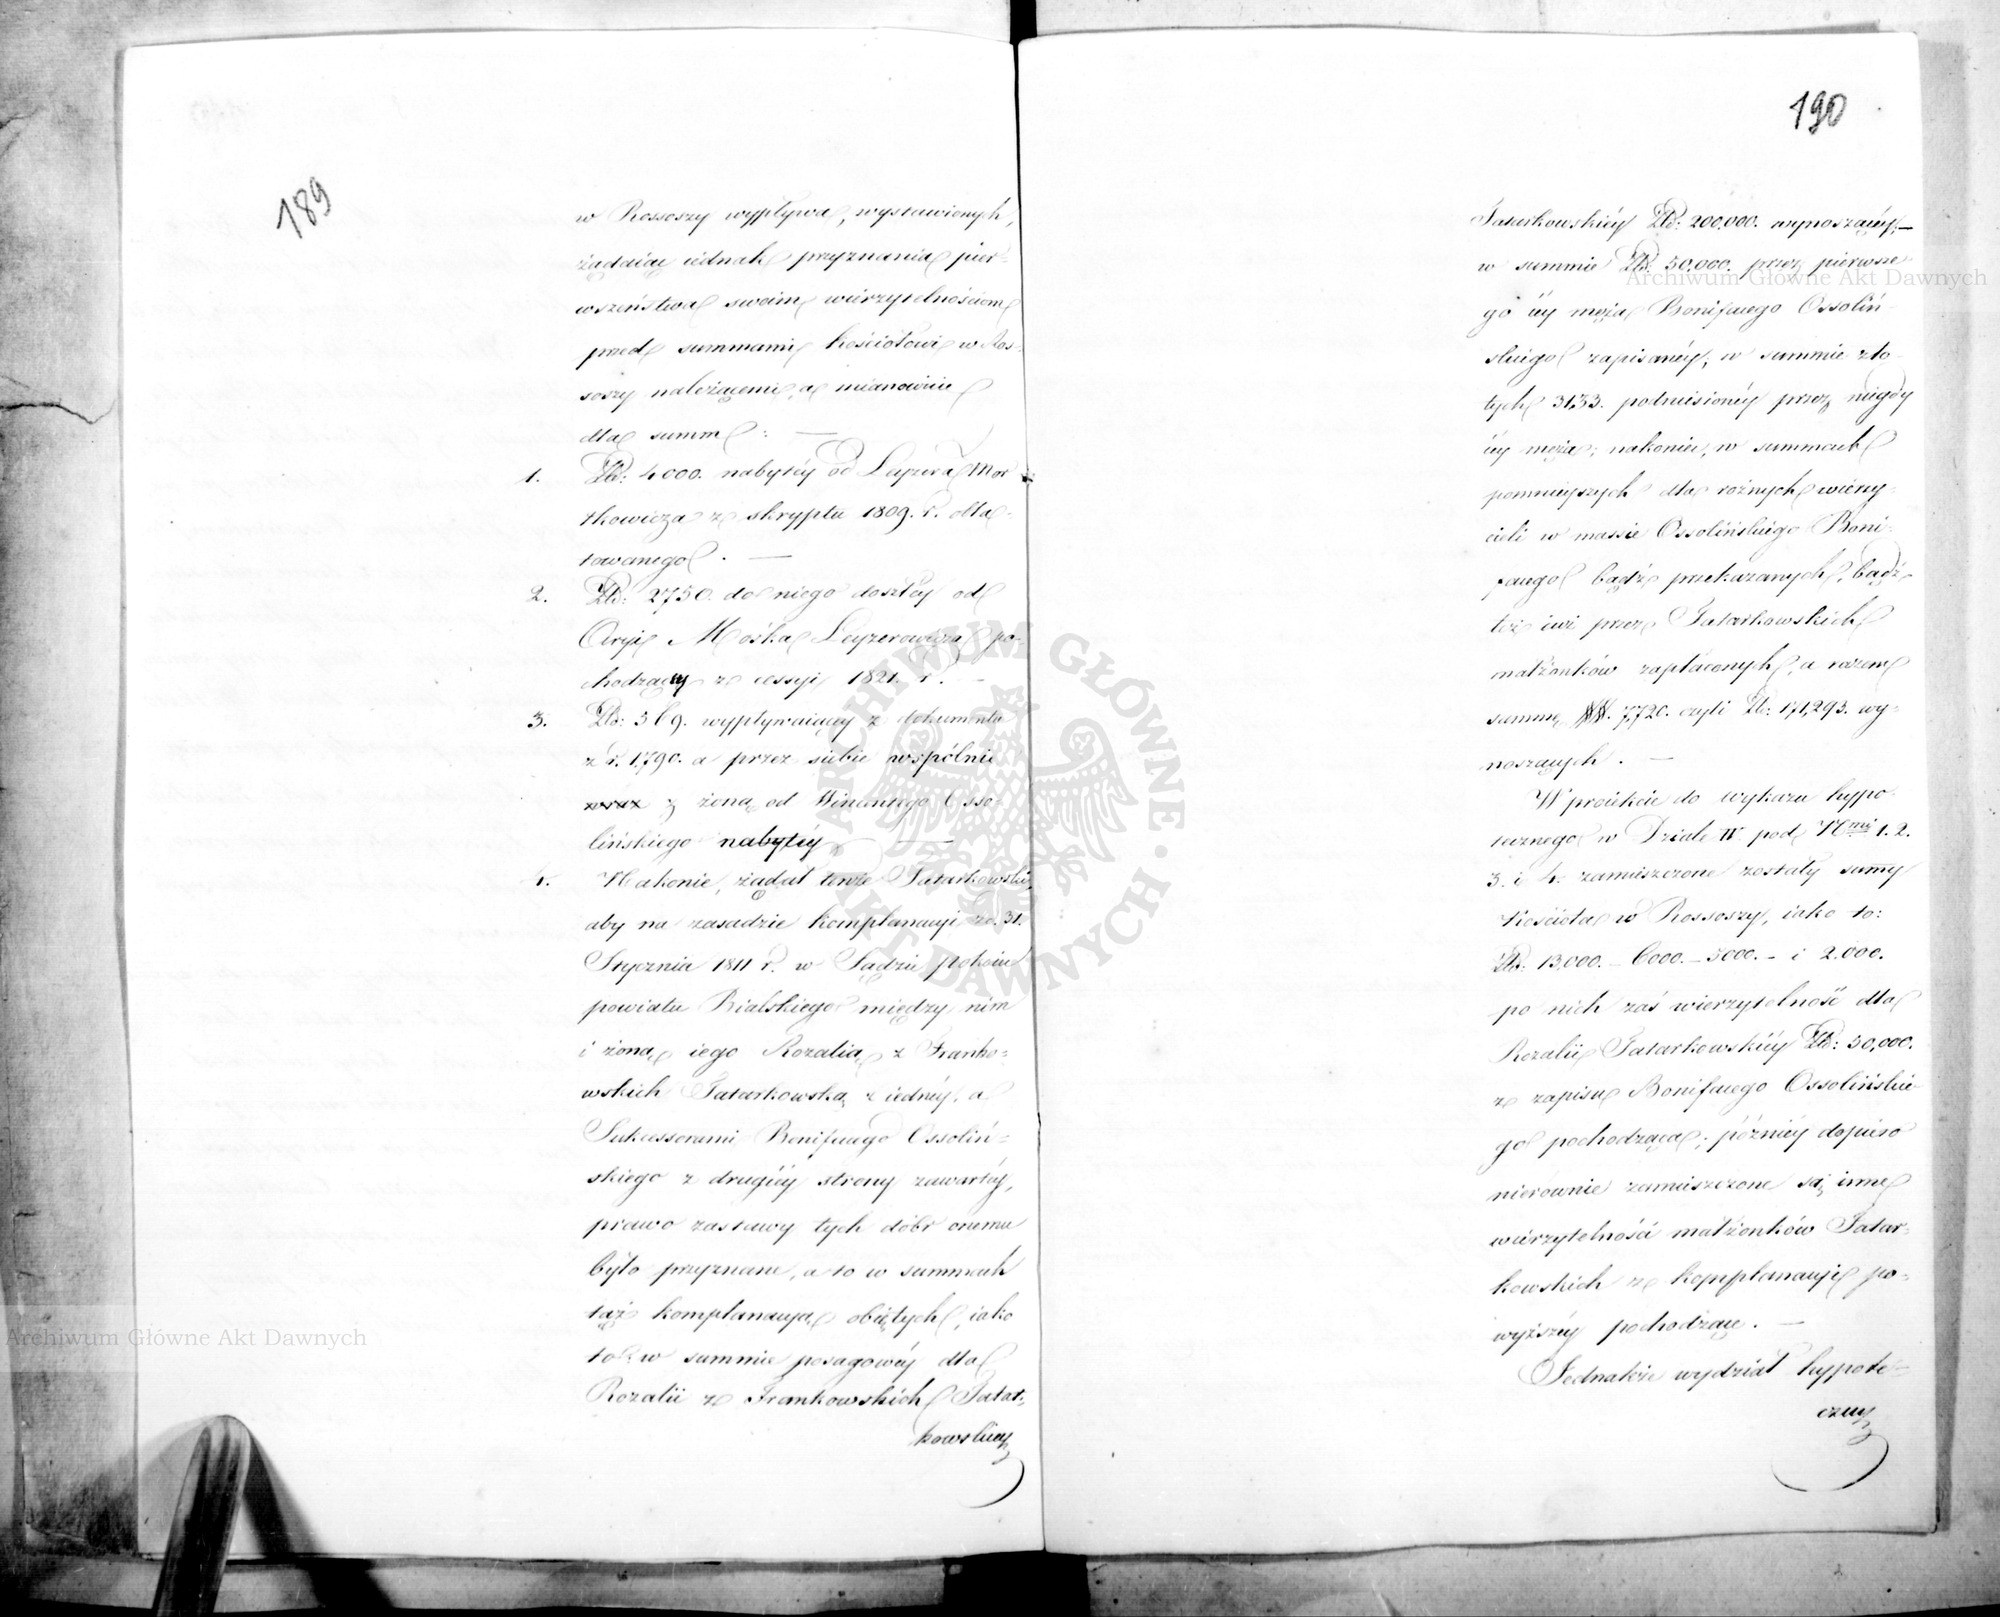 189
w Rossoszy wypływa, wystawionych,
żądaiąc iednak przyznania pier-
wszeństwa swoim wierzytelnościom
przed summami kościołowi w Ros-
soszy należącemi, a mianowicie
dla summ: —
1. Złt: 4000. nabytéy od Leyzera Mor
tkowicza z skryptu 1809. r. dta-
towanego. —
2. Złt: 2750. do niego doszłéy od
Moska Leyzerowicza po-
chodzącey z cessyi 1821. r. —
3. Złt: 369. wypływaiącéy z dokumentu
z r. 1790. a przez siebie wspólnie
wraz z żoną od Wincentego Osso-
lińskiego nabytéy —
4. Nakonie, żądał tenże Tatarkowski,
aby na zasadzie komplanacyi z d. 31.
Stycznia 1811 r. w Sądzie pokoiu
powiatu Bialskiego między nim
i żoną iego Rozalią z Franko-
wskich Tatarkowską z iednéy, a
Sukcessorami Bonifacego Ossoliń-
skiego z drugiéy strony zawartéy,
prawo zastawy tych dóbr onemu
było przyznane, a to w summach
tąż komplanacyą obiętych, iako
to: w summie posagowéy dla
Rozalii z Frankowskich Tatar-
kowskiey
190
Tatarkowskiéy Złt: 200,000. wynoszącéy, —
w summie Złt: 50,000. przez pierwsze
go iéy męża Bonifacego Ossoliń-
skiego zapisanéy, w summie zło-
tych 3133. podniesionéy przez niegdy
iéy męża; nakoniec, w summach
pomnieyszych dla rożnych wierzy-
cieli w massie Ossolińskiego Boni-
facego bądź przekazanych, bądź
też iuż przez Tatarkowskich
małżonków zapłaconych, a razem
summę 7,720. czyli Złt: 171,293. wy-
noszących. —
W proiekcie do wykazu hypo-
tecznego w Dziale IV. pod Nmi 1. 2.
3. i 4. zamieszczone zostały summy
Kościoła w Rossoszy, iako to:
Złt: 13,000. – 6000. – 5000. – i 2.000.
po nich zaś wierzytelność dla
Rozalii Tatarkowskiéy Złt: 50,000.
z zapisu Bonifacego Ossolińskie
go pochodząca; późniéy dopiero
nierównie zamieszczone są inne
wierzytelności małżonków Tatar-
kowskich z komplanacyi po-
wyższéy pochodzące. —
Jednakże wydział hypote-
czny
Archiwum Główne Akt Dawnych
Archiwum Główne Akt Dawnych
ARCHIWUM GŁÓWNE · AKT DAWNYCH ·